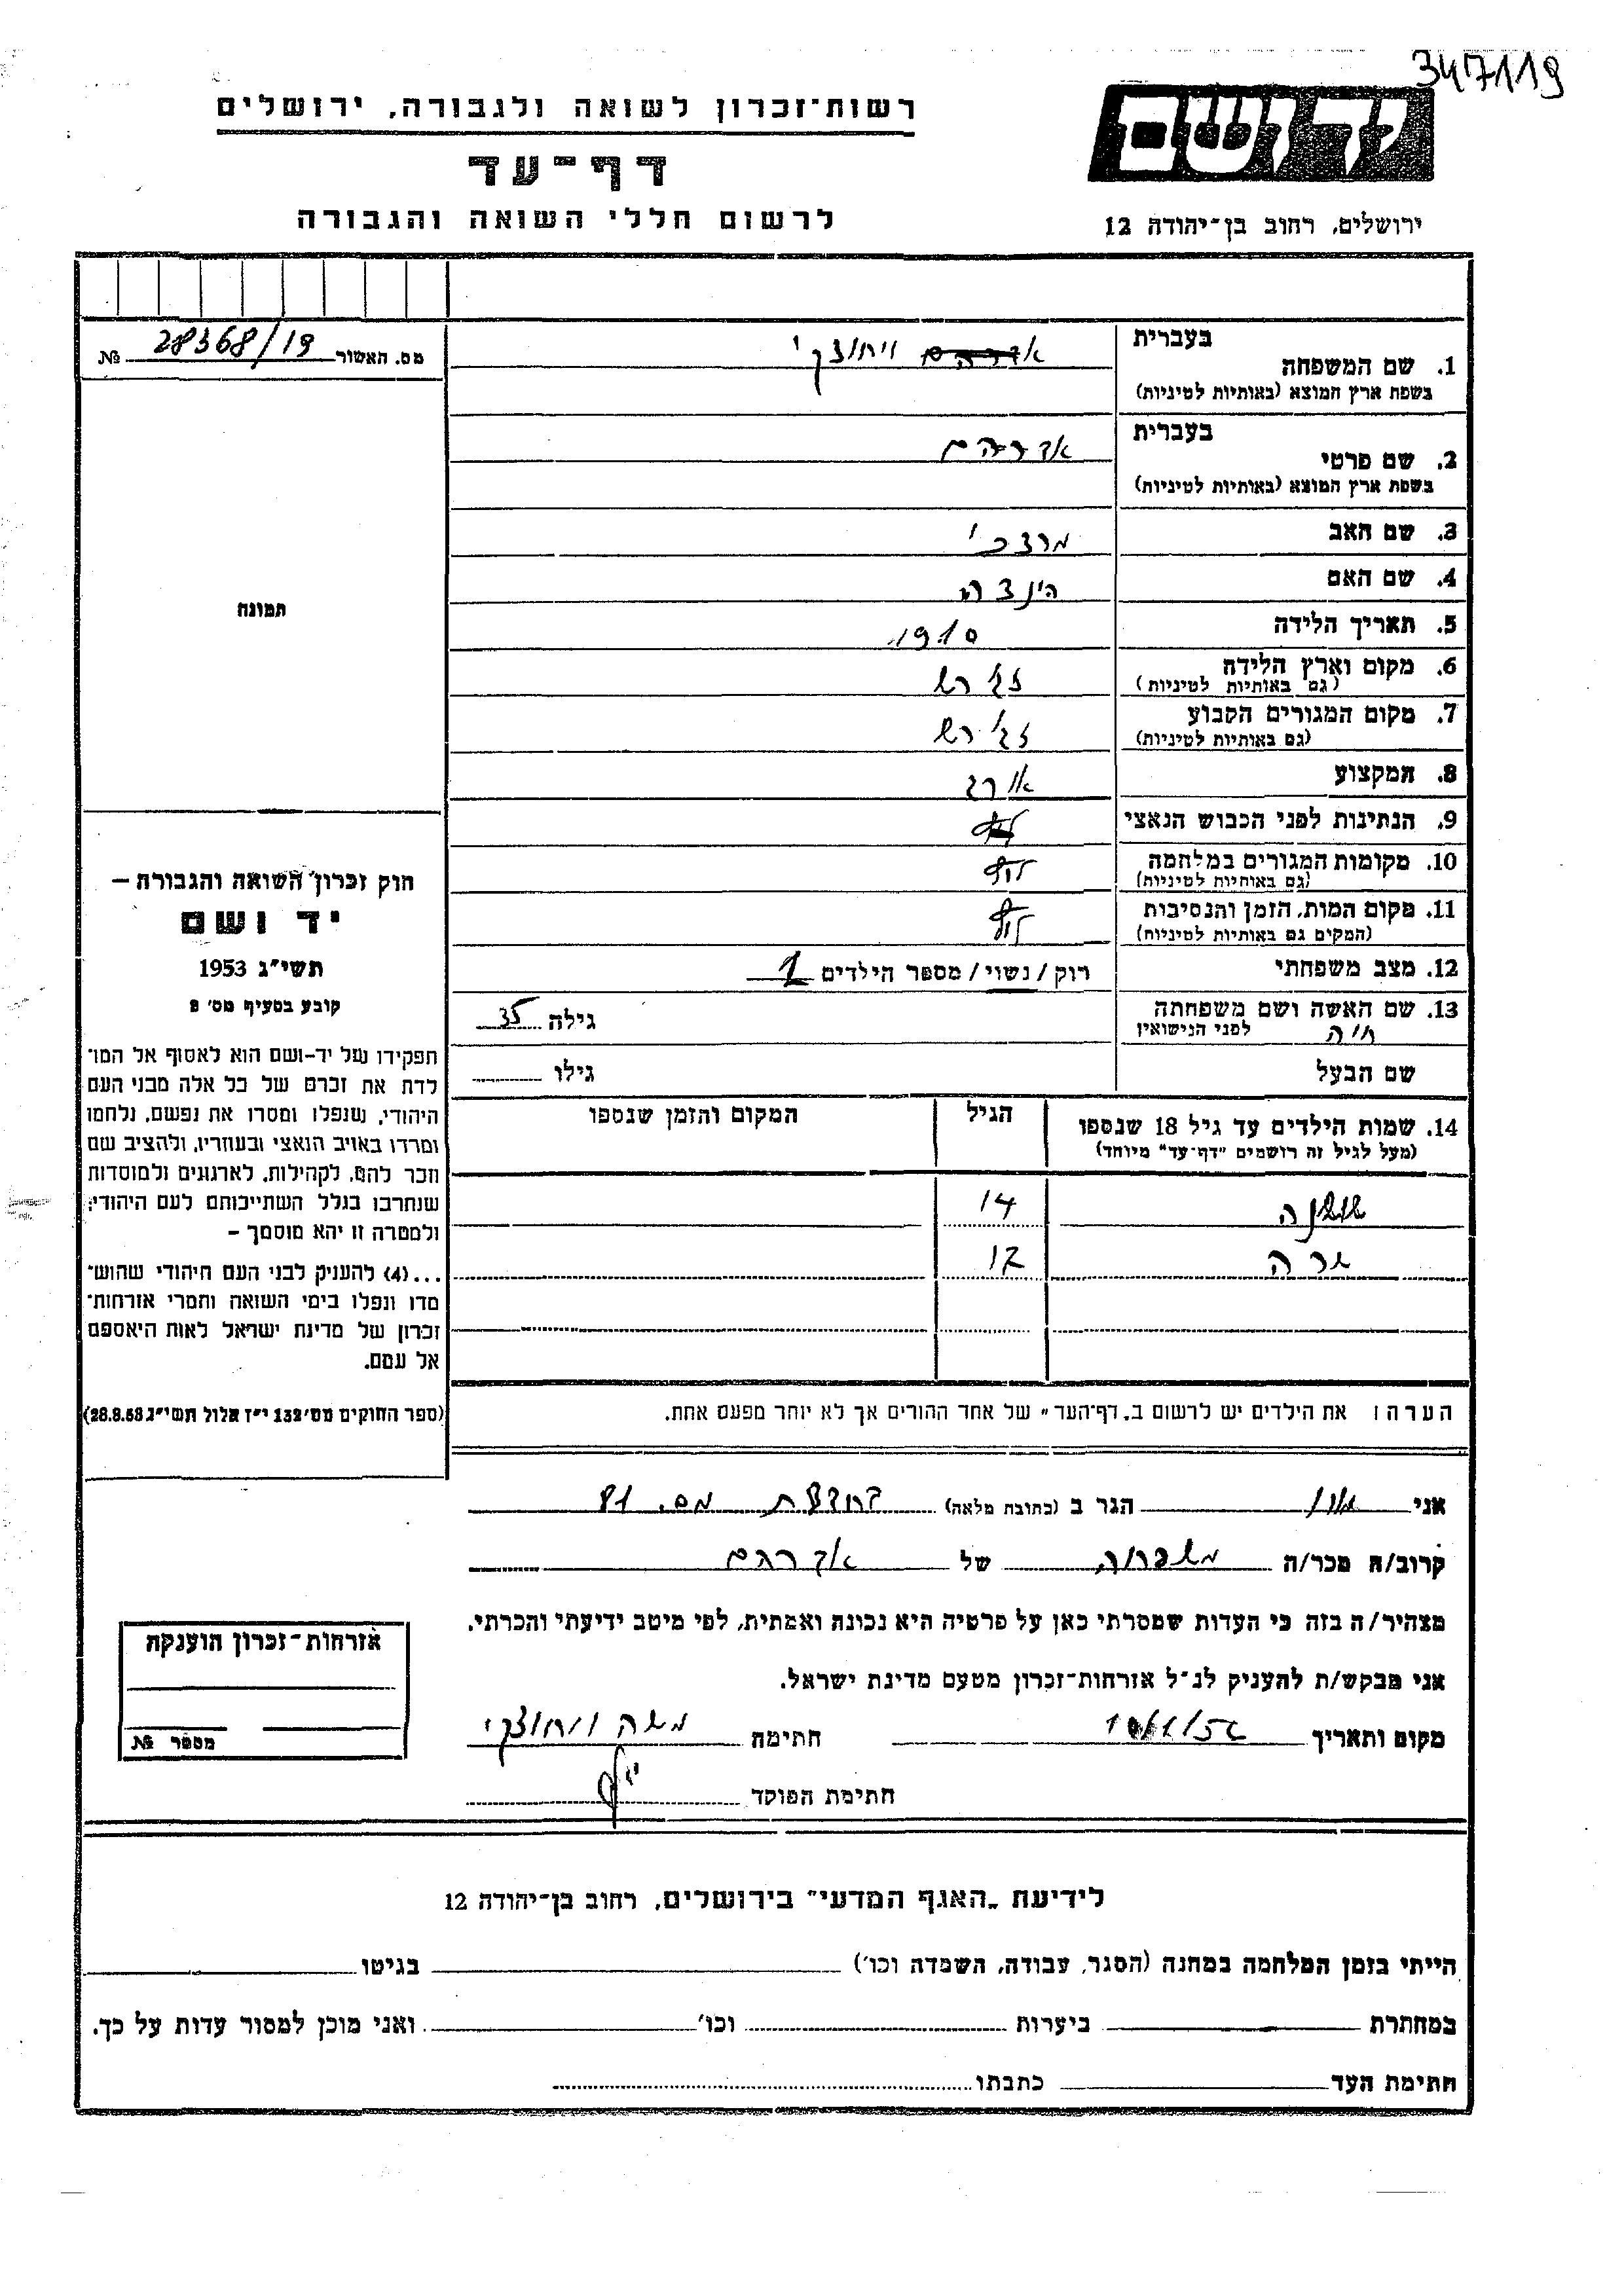 3417119
רשות־זכרון לשואה ולגבורה, ירושלים
דף־עד
לרשום חללי השואה והגבורה
יד ושם
ירושלים, רחוב בן־יהודה 12
מס. האשור 28368/19 №
תמונה
חוק זכרון השואה והגבורה –
יד ושם
תשי״ג 1953
קובע בסעיף מס׳ 2
תפקידו של יד-ושם הוא לאסוף אל המו־
לדת את זכרם של כל אלה מבני העם
היהודי, שנפלו ומסרו את נפשם, נלחמו
ומרדו באויב הנאצי ובעוזריו, ולהציב שם
וזכר להם, לקהילות, לארגונים ולמוסדות
שנחרבו בגלל השתייכותם לעם היהודי;
ולמטרה זו יהא מוסמך –
...(4) להעניק לבני העם היהודי שהוש־
מדו ונפלו בימי השואה והמרי אזרחות־
זכרון של מדינת ישראל לאות היאספם
אל עמם.
(ספר החוקים מס׳ 132 י״ז אלול תשי״ג 28.8.53)
בעברית
1. שם המשפחה אברהם ויחוצקי
בשפת ארץ המוצא (באותיות לטיניות)
בעברית
2. שם פרטי אברהם
בשפת ארץ המוצא (באותיות לטיניות)
3. שם האב מרדכי
4. שם האם הינדה
5. תאריך הלידה 1910
6. מקום וארץ הלידה זגירש
(גם באותיות לטיניות)
7. מקום המגורים הקבוע זגירש
(גם באותיות לטיניות)
8. המקצוע אורג
9. הנתינות לפני הכבוש הנאצי
10. מקומות המגורים במלחמה לודז
(גם באותיות לטיניות)
11. מקום המות, הזמן והנסיבות לודז
(המקום גם באותיות לטיניות)
12. מצב משפחתי רוק / נשוי / מספר הילדים 2
13. שם האשה ושם משפחתה
לפני הנישואין חיה גילה 35
שם הבעל גילו
14. שמות הילדים עד גיל 18 שנספו הגיל המקום והזמן שנספו
(מעל לגיל זה רושמים "דף־עד" מיוחד)
שושנה 14
שרה 12
הערה: את הילדים יש לרשום ב„דף־העד" של אחד ההורים אך לא יותר מפעם אחת.
אני הגר ב (כתובת מלאה) מס. 81
קרוב/ה מכר/ה משפחה של אברהם
מצהיר/ה בזה כי העדות שמסרתי כאן על פרטיה היא נכונה ואמתית, לפי מיטב ידיעתי והכרתי.
אני מבקש/ת להעניק לנ״ל אזרחות־זכרון מטעם מדינת ישראל.
מקום ותאריך חתימה משה ויחוצקי
חתימת הפוקד
אזרחות־זכרון הוענקה
מספר №
לידיעת „האגף המדעי" בירושלים, רחוב בן־יהודה 12
הייתי בזמן המלחמה במחנה (הסגר, עבודה, השמדה וכו׳) בגיטו
במחתרת ביערות וכו׳ ואני מוכן למסור עדות על כך.
חתימת העד כתבתו